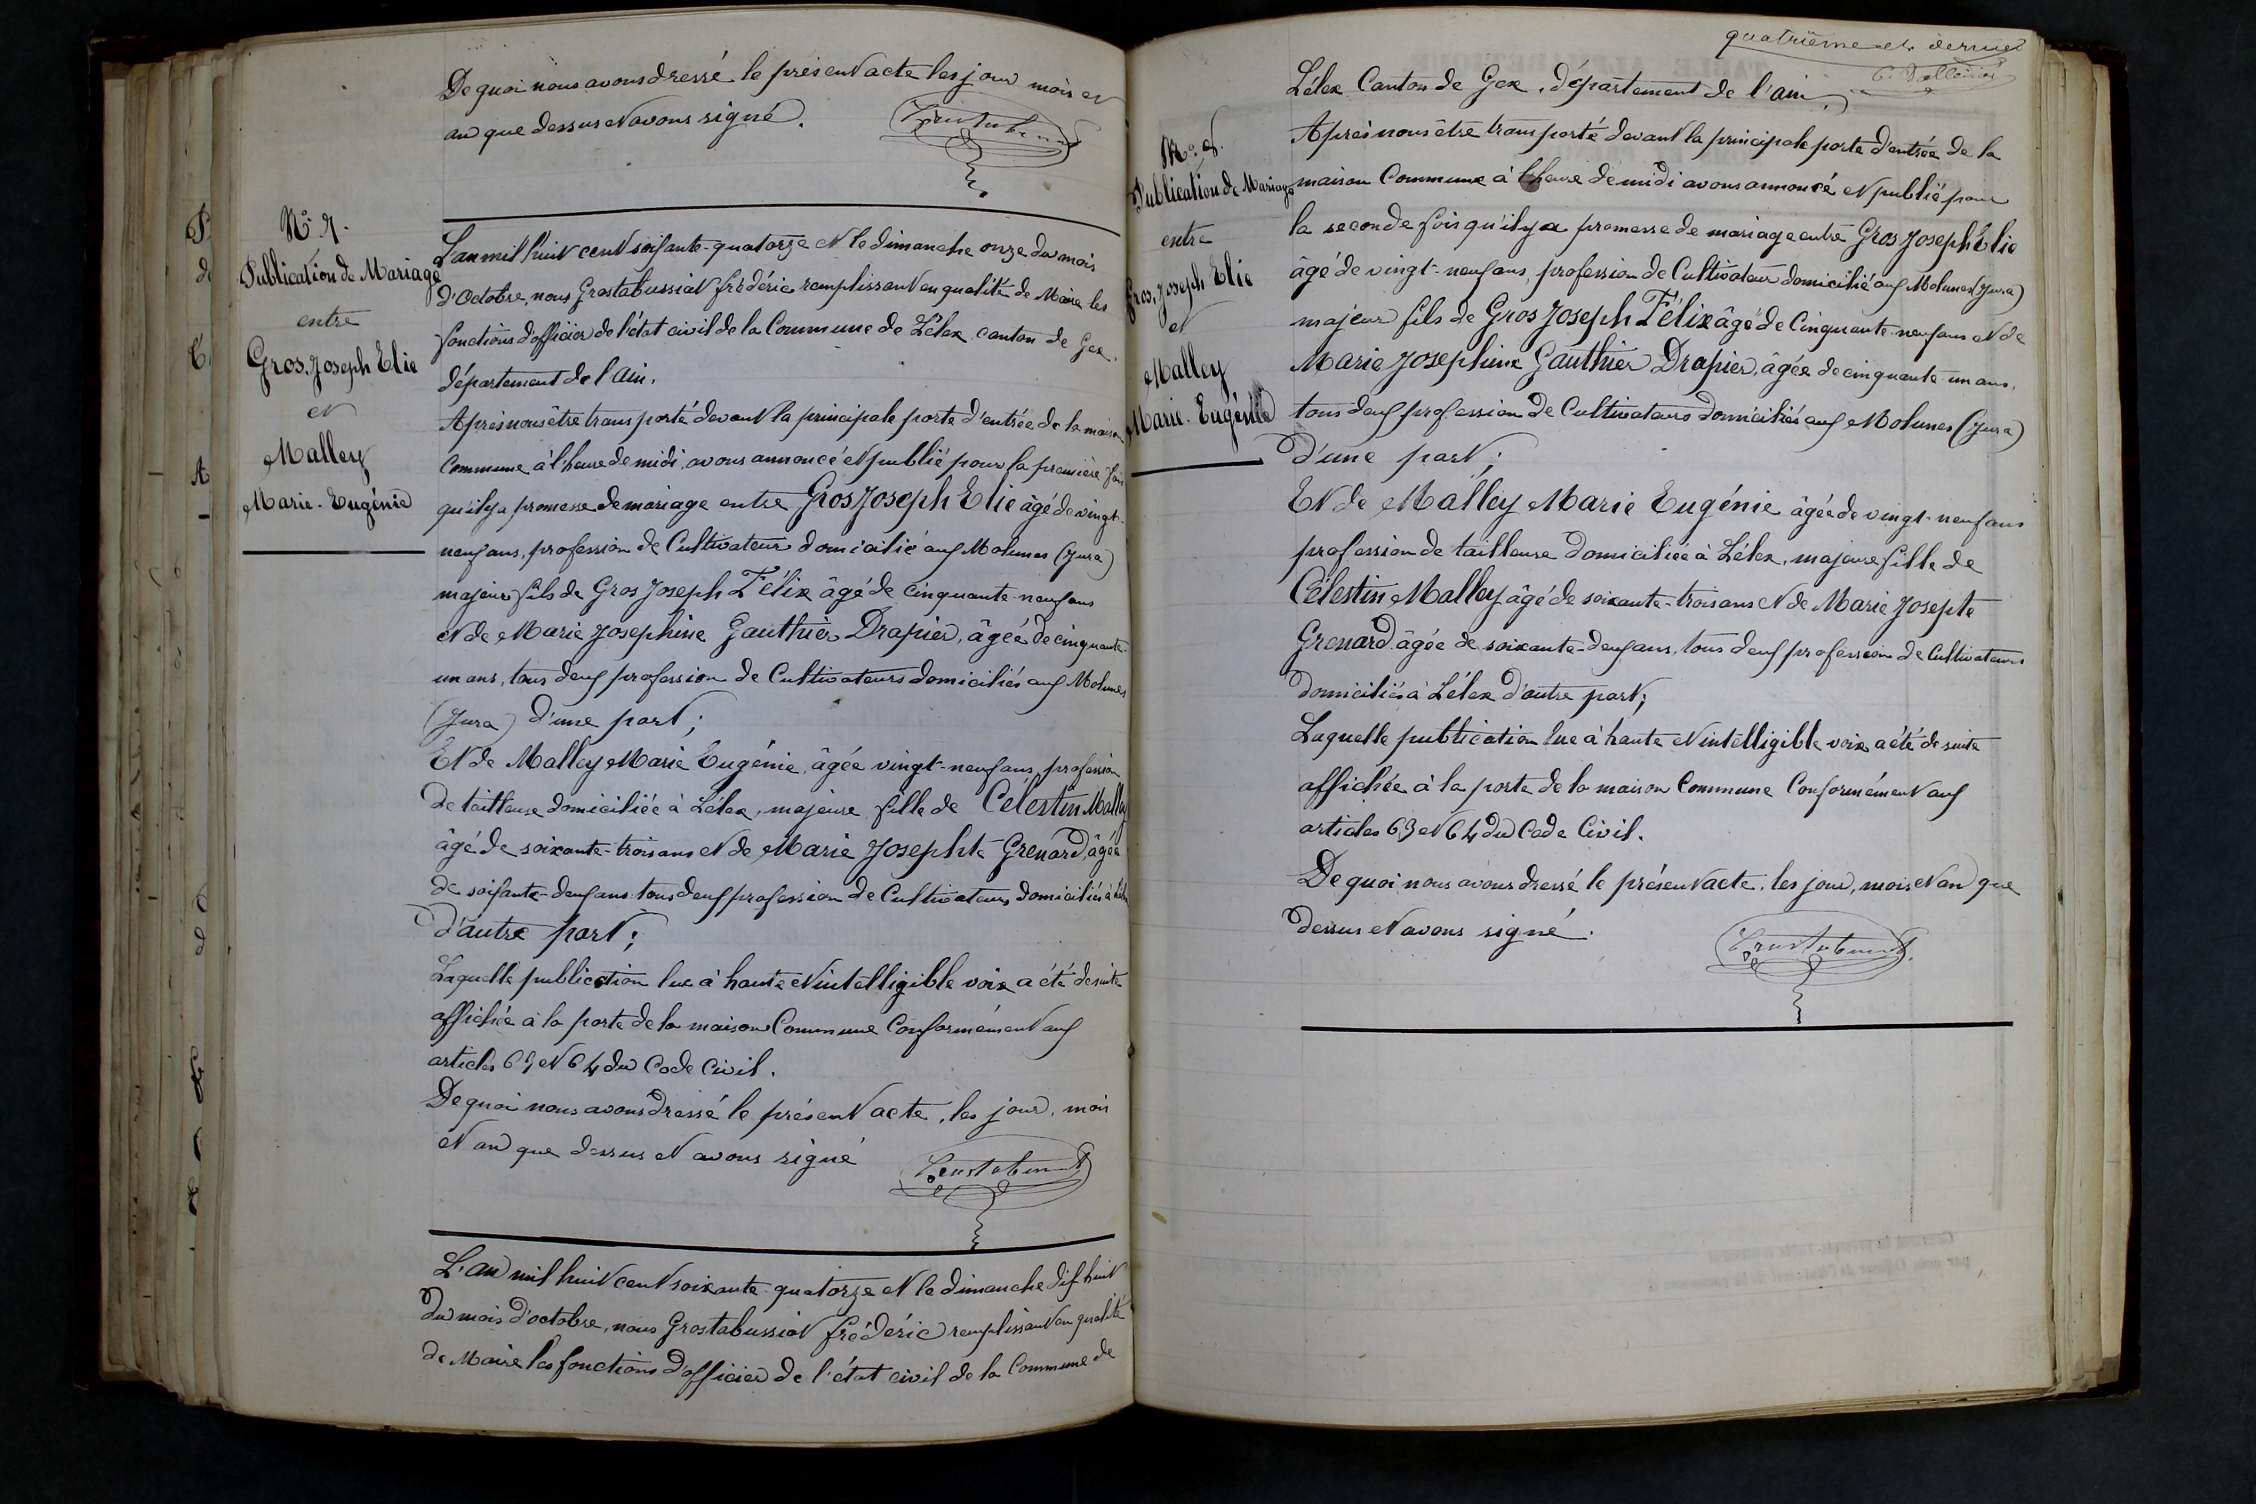 De quoi nous avons dressé le présent acte les jour mois et
an que dessus et avons signé.
N° 7.
Publication de Mariage
entre
Gros Joseph Elie
et
Malley
Marie-Eugénie
L'an mil huit cent soixante-quatorze et le dimanche onze du mois
d'Octobre, nous Grostabussiat frédéric remplissant en qualité de Maire les
fonctions d'officier de l'état civil de la Commune de Lélex canton de Gex.
département de l'ain.
Après nous être transporté devant la principale porte d'entrée de la maison
Commune à l'heure de midi, avons annoncé et publié pour la première fois
qu'il y a promesse de mariage entre Gros Joseph Elie âgé de vingt-
neuf ans, profession de Cultivateur domicilié aux Molunes (Jura)
majeur fils de Gros Joseph Félix âgé de cinquante-neuf ans
et de Marie Josephine Gauthier Drapier, âgée de cinquante-
un ans, tous deux profession de Cultivateurs domiciliés aux Molunes
(Jura) d'une part;
Et de Malley Marie Eugénie, âgée vingt-neuf ans, profession
de tailleuse domiciliée à Lélex, majeure fille de Célestin Malley
âgé de soixante-trois ans et de Marie Josephte Grenard, âgée
de soixante-deux ans tous deux profession de Cultivateurs domiciliés à Lélex
d'autre part;
Laquelle publication lue à haute et intelligible voix a été de suite
affichée à la porte de la maison Commune Conformément aux
articles 63 et 64 du Code Civil.
De quoi nous avons dressé le présent acte, les jour, mois
et an que dessus et avons signé
L'an mil huit cent soixante-quatorze et le dimanche dix huit
du mois d'octobre, nous Grostabussiat frédéric remplissant en qualité
de Maire les fonctions d'officier de l'état civil de la Commune de
quatrième et dernier
Lélex Canton de Gex, département de l'ain,
N° 8.
Publication de Mariage
entre
Gros Joseph Elie
et
Malley
Marie-Eugénie
Après nous être transporté devant la principale porte d'entrée de la
maison Commune à l'heure de midi avons annoncé et publié pour
la seconde fois qu'il y a promesse de mariage entre Gros Joseph Elie
âgé de vingt-neuf ans, profession de Cultivateur domicilié aux Molunes (Jura)
majeur fils de Gros Joseph Félix âgé de Cinquante-neuf ans et de
Marie Josephine Gauthier Drapier, âgée de cinquante-un ans,
tous deux profession de Cultivateurs domiciliés aux Molunes (Jura)
d'une part;
Et de Malley Marie Eugénie âgée de vingt-neuf ans
profession de tailleuse domiciliée à Lélex, majeure fille de
Célestin Malley âgé de soixante-trois ans et de Marie Josepte
Grenard âgée de soixante-deux ans, tous deux profession de Cultivateurs
domiciliés à Lélex d'autre part;
Laquelle publication lue à haute et intelligible voix a été de suite
affichée à la porte de la maison Commune Conformément aux
articles 63 et 64 du Code Civil.
De quoi nous avons dressé le présent acte, les jour, mois et an que
dessus et avons signé.